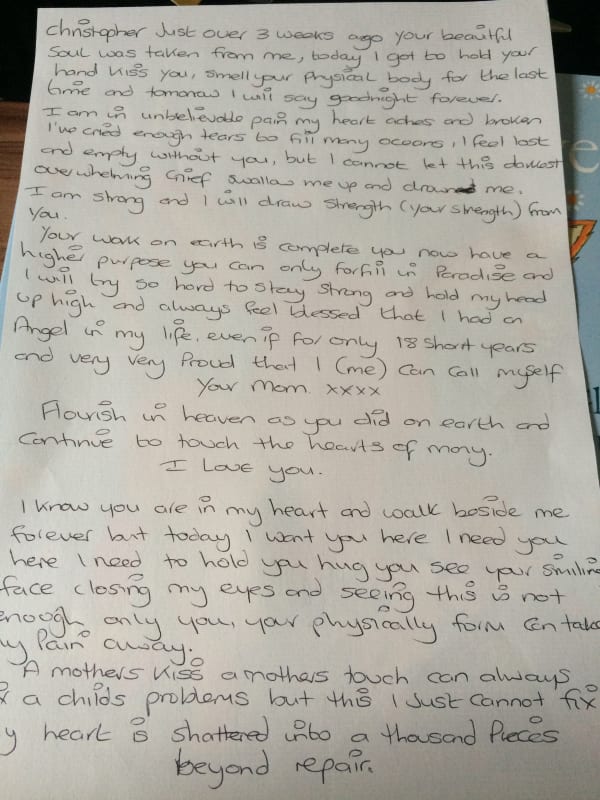 Christopher Just over 3 weeks ago your beautiful
Soul was taken from me, today I got to hold your
hand kiss you, smell your physical body for the last
time and tomorrow I will say goodnight forever.
I am in unbelievable pain my heart aches and broken
I've cried enough tears to fill many oceans, I feel lost
and empty without you, but I cannot let this darkest
overwhelming Grief swallow me up and drown me.
I am strong and I will draw strength (your strength) from
you.
Your work on earth is complete you now have a
higher purpose you can only forfill in Paradise and
I will try so hard to stay strong and hold my head
up high and always feel blessed that I had an
Angel in my life, even if for only 18 short years
and very very Proud that I (me) can call myself
Your Mom. xxxx
Flourish in heaven as you did on earth and
Continue to touch the hearts of many.
I Love you.
I know you are in my heart and walk beside me
forever but today I want you here I need you
here I need to hold you hug you see your smiling
face closing my eyes and seeing this is not
enough only you, your physically form can take
my Pain away.
A mothers kiss a mothers touch can always
fix a childs problems but this I Just cannot fix
my heart is shattered into a thousand Pieces
beyond repair.